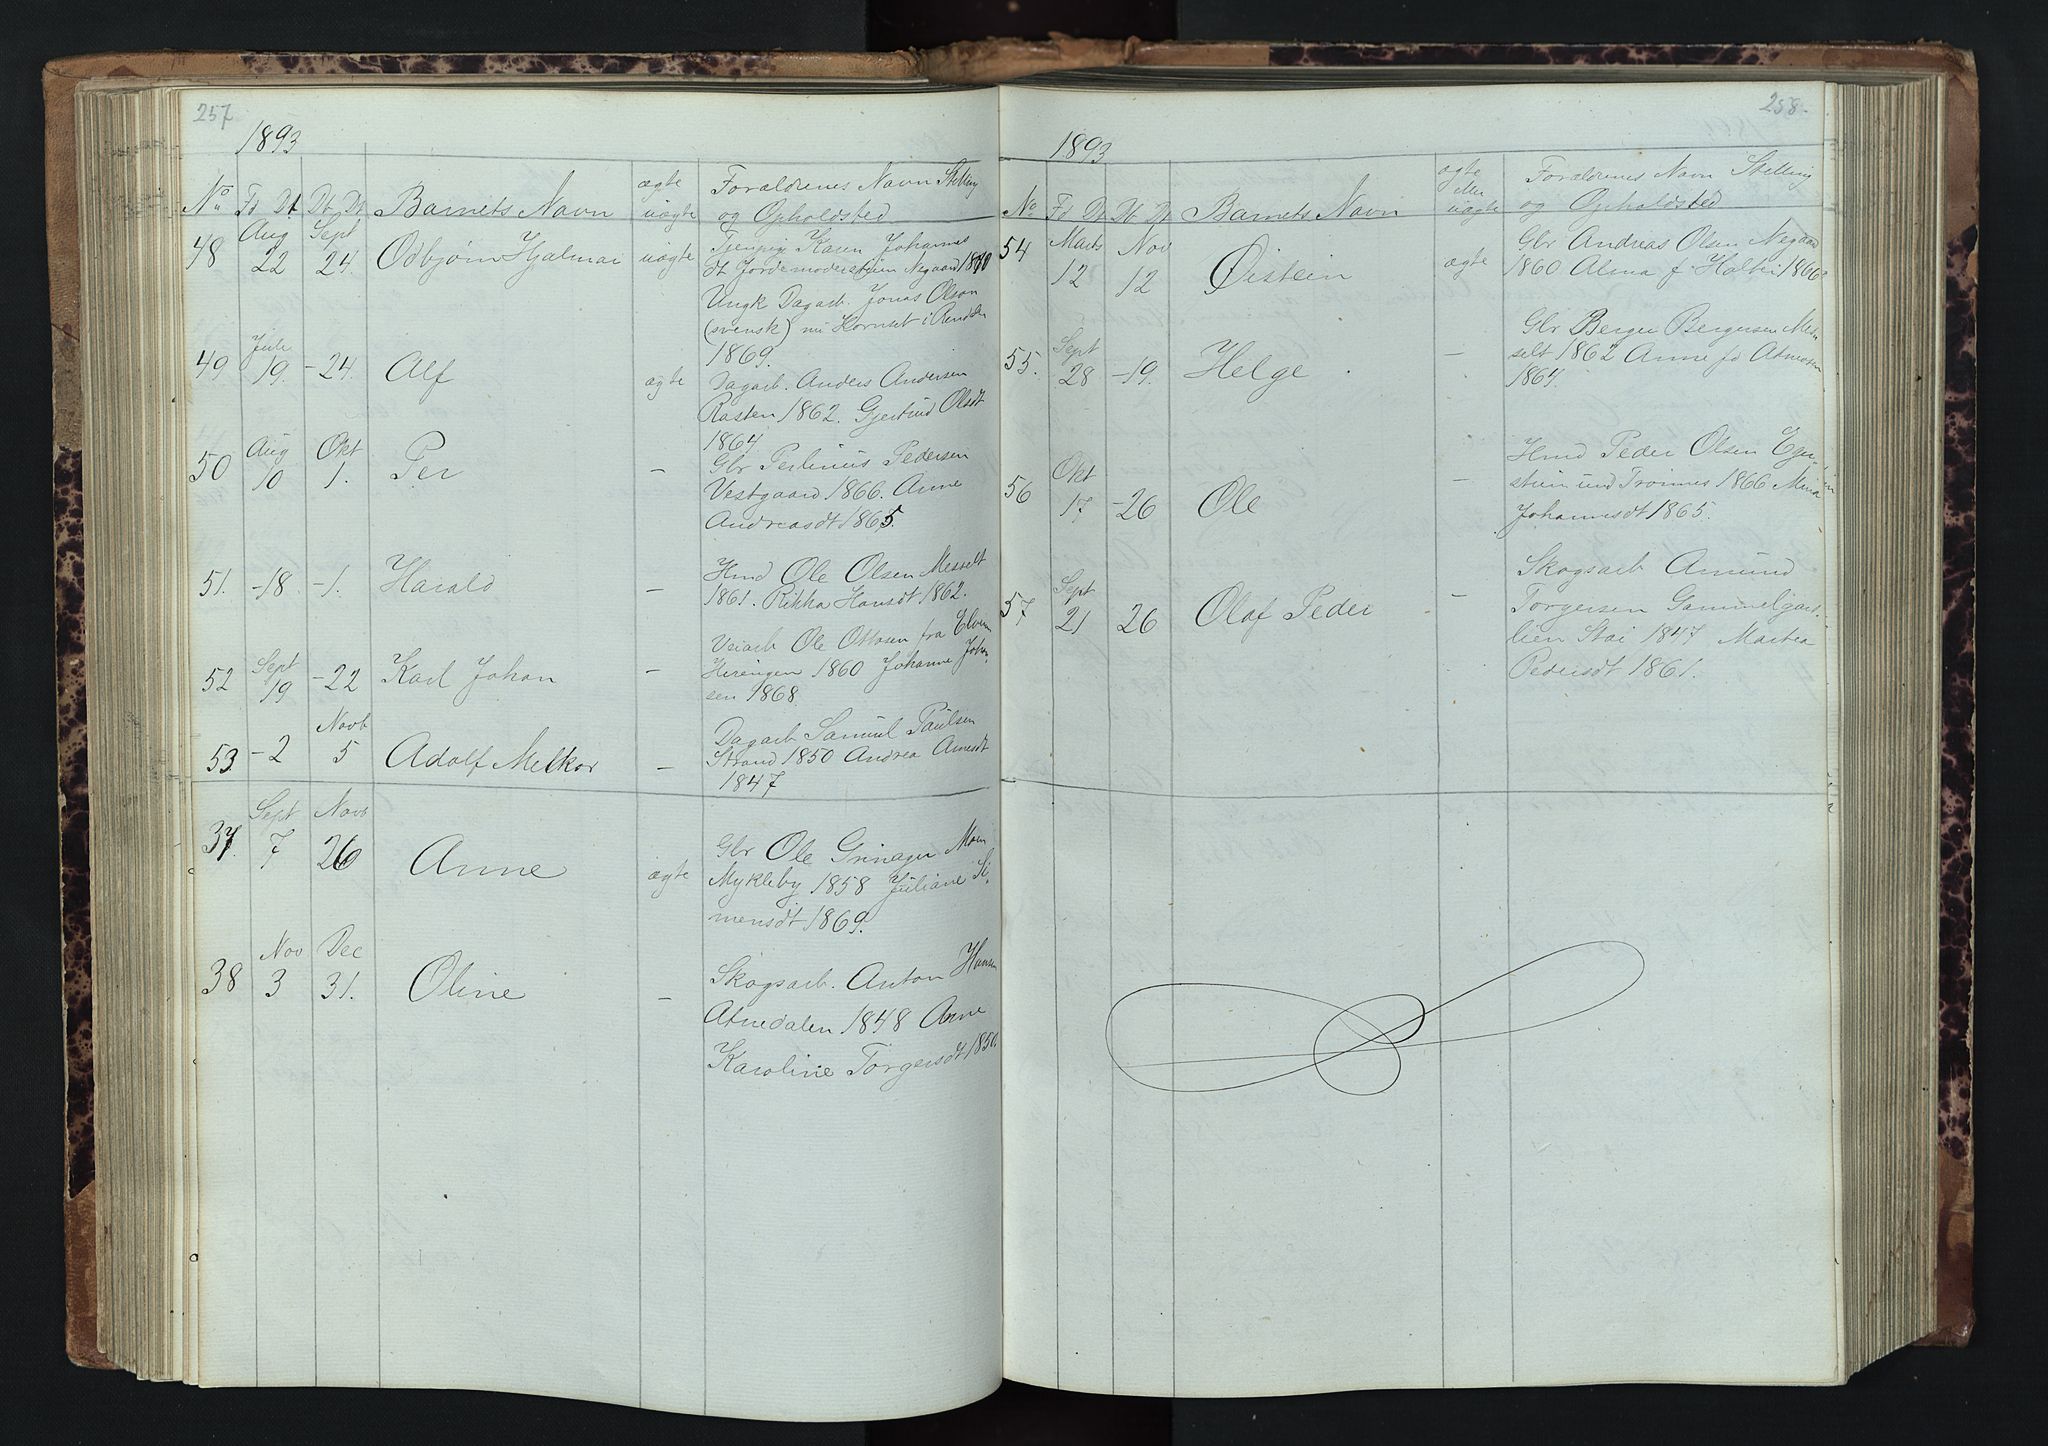 257
1893
No Fd Dt Db Dt Barnets Navn ægte uægte Forældrenes Navn Stilling og Opholdsted
48 Aug 22 Sept 24. Odbjørn Hjalmar uægte Tjenpig Karen Johannes
dt Jordemoderstuen Negaard 1870
Ungk Dagarb. Jonas Olson
(svensk) nu Hornset i Rendalen
1869.
49 Juli 19. -24. Alf ægte Dagarb. Anders Andersen
Rasten 1862. Gjertrud Olsdt
1864
50 Aug 10 Okt 1. Per - Gbr Perlinus Pedersen
Vestgaard 1866. Anne
Andreasdt 1865.
51. -18. -1. Harald - Hmd Ole Olsen Messelt
1861. Rikka Hansdt 1862.
52 Sept 19 -22 Karl Johan - Veiarb Ole Ottosen fra Elverum
1860 Johanne Johan-
sen 1868
53. -2 Novb 5 Adolf Melkor - Dagarb Samuel Paulsen
Strand 1850 Andrea Arnesdt
1847
37. Sept 7 Novb 26 Anne ægte Gbr Ole Grinager Moen
Mykleby 1858 Juliane Si-
mensdt 1869.
38 Nov 3 Dec 31. Oline - Skogsarb. Anton Hansen
Atnedalen 1848 Anne
Karoline Torgersdt 1850.
258.
1893
No Fd Dt Db Dt Barnets Navn ægte eller uægte Forældrenes Navn Stilling og Opholdsted
54 Marts 12 Nov 12 Øistein ægte Gbr Andreas Olsen Negaard
1860 Alma f. Holter 1866
55. Sept 28 -19. Helge - Gbr Berger Bergersen Mes-
selt 1862 Anne fd Atneosen
1864.
56 Okt 17 -26 Ole - Hmd Peder Olsen
und Trønnes 1866 Mina
Johannesdt 1865.
57 Sept 21 26 Olaf Peder - Skogsarb Amund
Torgersen Gammelgard-
lien Stai 1847 Martea
Pedersdt 1861.